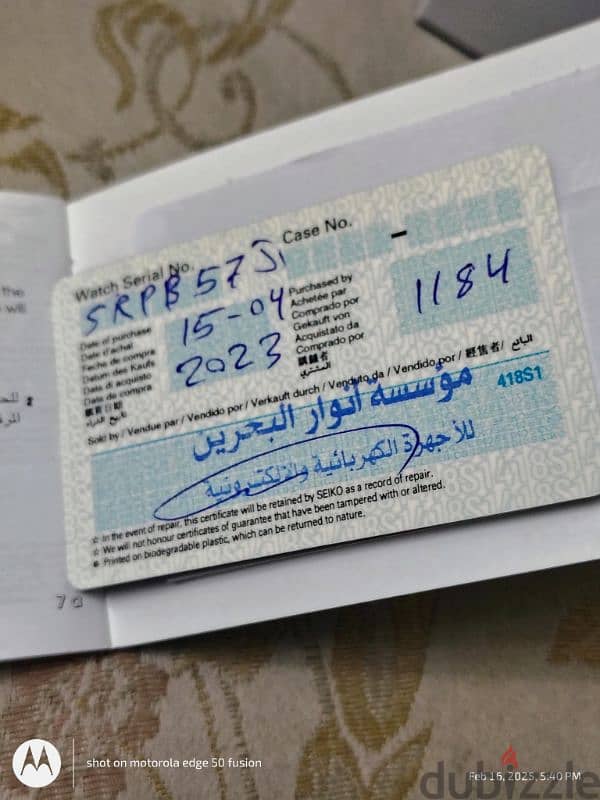 Watch Serial No.
Case No. -
SRPB57J1
Date of purchase
Date d'achat
Fecha de compra
Datum des Kaufs
Data di acquisto
Data da compra
購買日期
تاريخ الشراء
15-04
2023
Purchased by
Achetée par
Comprado por
Gekauft von
Acquistato da
Comprado por
المشتري
1184
Sold by / Vendue par / Vendido por / Verkauft durch / Venduto da / Vendido por / 經售者 / البائع
418S1
مؤسسة أنوار البحرين
للأجهزة الكهربائية والإلكترونية
☆ In the event of repair, this certificate will be retained by SEIKO as a record of repair.
☆ We will not honour certificates of guarantee that have been tampered with or altered.
● Printed on biodegradable plastic, which can be returned to nature.
the
will
7
shot on motorola edge 50 fusion
Feb 16, 2025, 5:40 PM
dubizzle